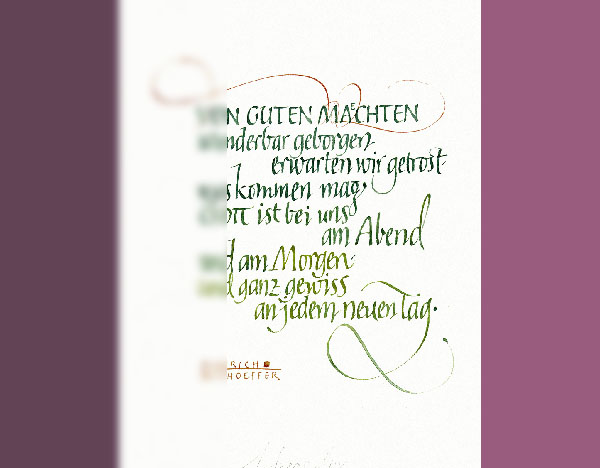 N GUTEN MAECHTEN
nderbar geborgen
erwarten wir getrost
s kommen mag,
ott ist bei uns
am Abend
d am Morgen
d ganz gewiss
an jedem neuen Tag.
RICH
HOEFFER